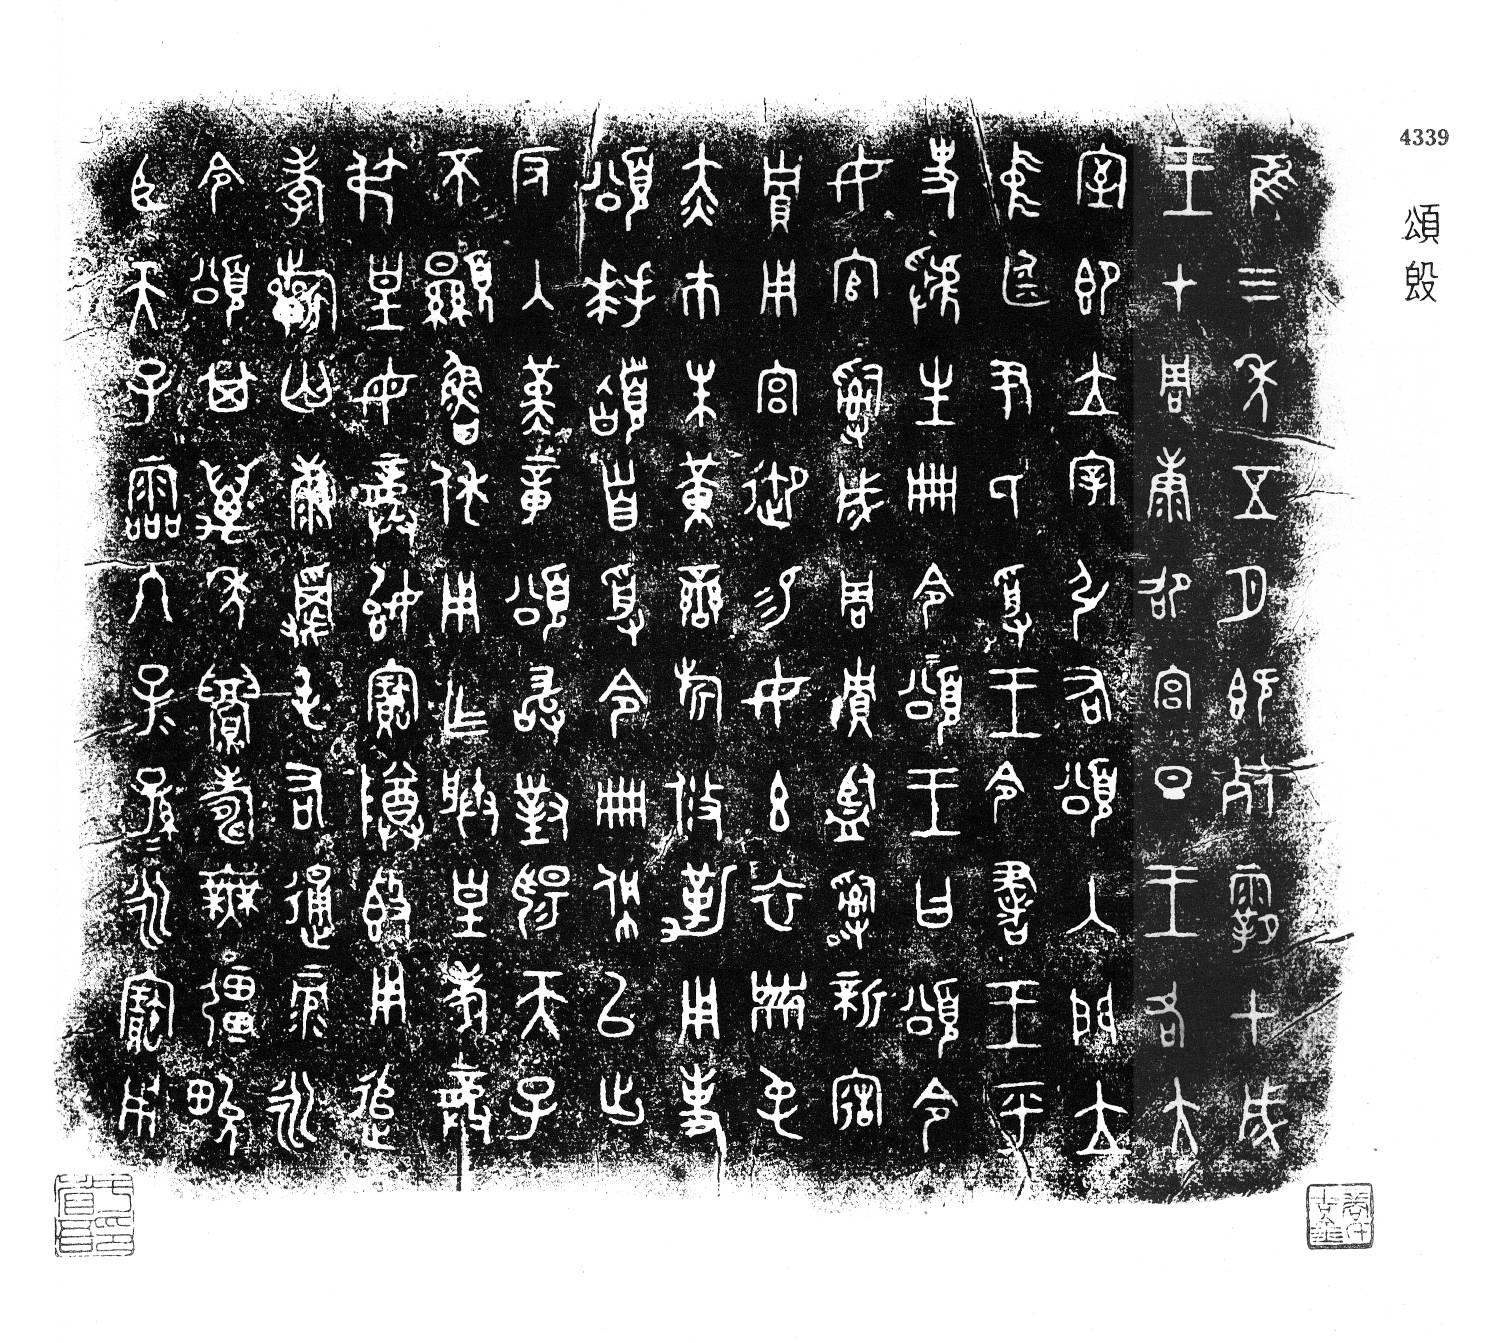 4339
頌𣪘
隹三年五月既死霸甲戌
王才周康卲宮旦王各大
室即立宰引右頌入門立
中廷尹氏受王令書王乎
史虢生冊令頌王曰頌令
女官𤔲成周貯監𤔲新造
貯用宮御易女玄衣黹屯
赤巿朱黃䜌旂攸勒用事
頌拜𩒨首受令冊佩以出
反入堇章頌敢對揚天子
不顯魯休用乍朕皇考龏
弔皇母龏始寶尊𣪘用追
孝𣄨匄康𠳋屯右通彔永
令頌其萬年眉壽無疆畯
臣天子霝冬子=孫=永寶用